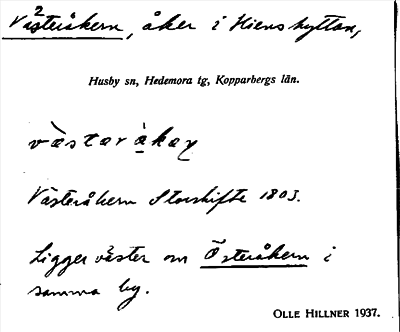 Västeråkern, åker i Hienshyttan,
Husby sn, Hedemora tg, Kopparbergs län.
västəråkaṇ
Västeråkern Storskifte 1803.
Ligger väster om Österåkern i
samma by.
OLLE HILLNER 1937.